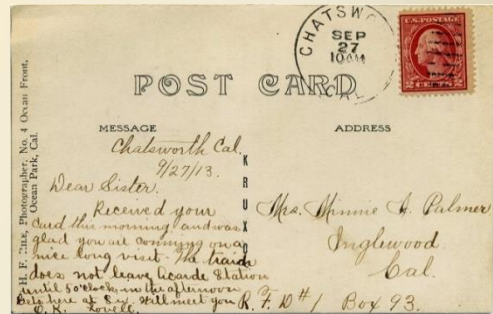 CHATSWO
SEP
27
10AM
CAL.
U.S. POSTAGE
2 CENTS 2
POST CARD
MESSAGE
ADDRESS
H. F. RILE, Photographer, No. 4 Ocean Front,
Ocean Park, Cal.
KRUXO
Chatsworth Cal.
9/27/13.
Dear Sister.
Received your
card this morning and was
glad you are comming on a
nice long visit. The train
does not leave Acarde Station
until 5 o'clock in the afternoon
Gets here at 6. Will meet you
O.K. Lovell.
Mrs. Minnie A. Palmer
Inglewood.
Cal.
R. F. D # 1 Box 93.